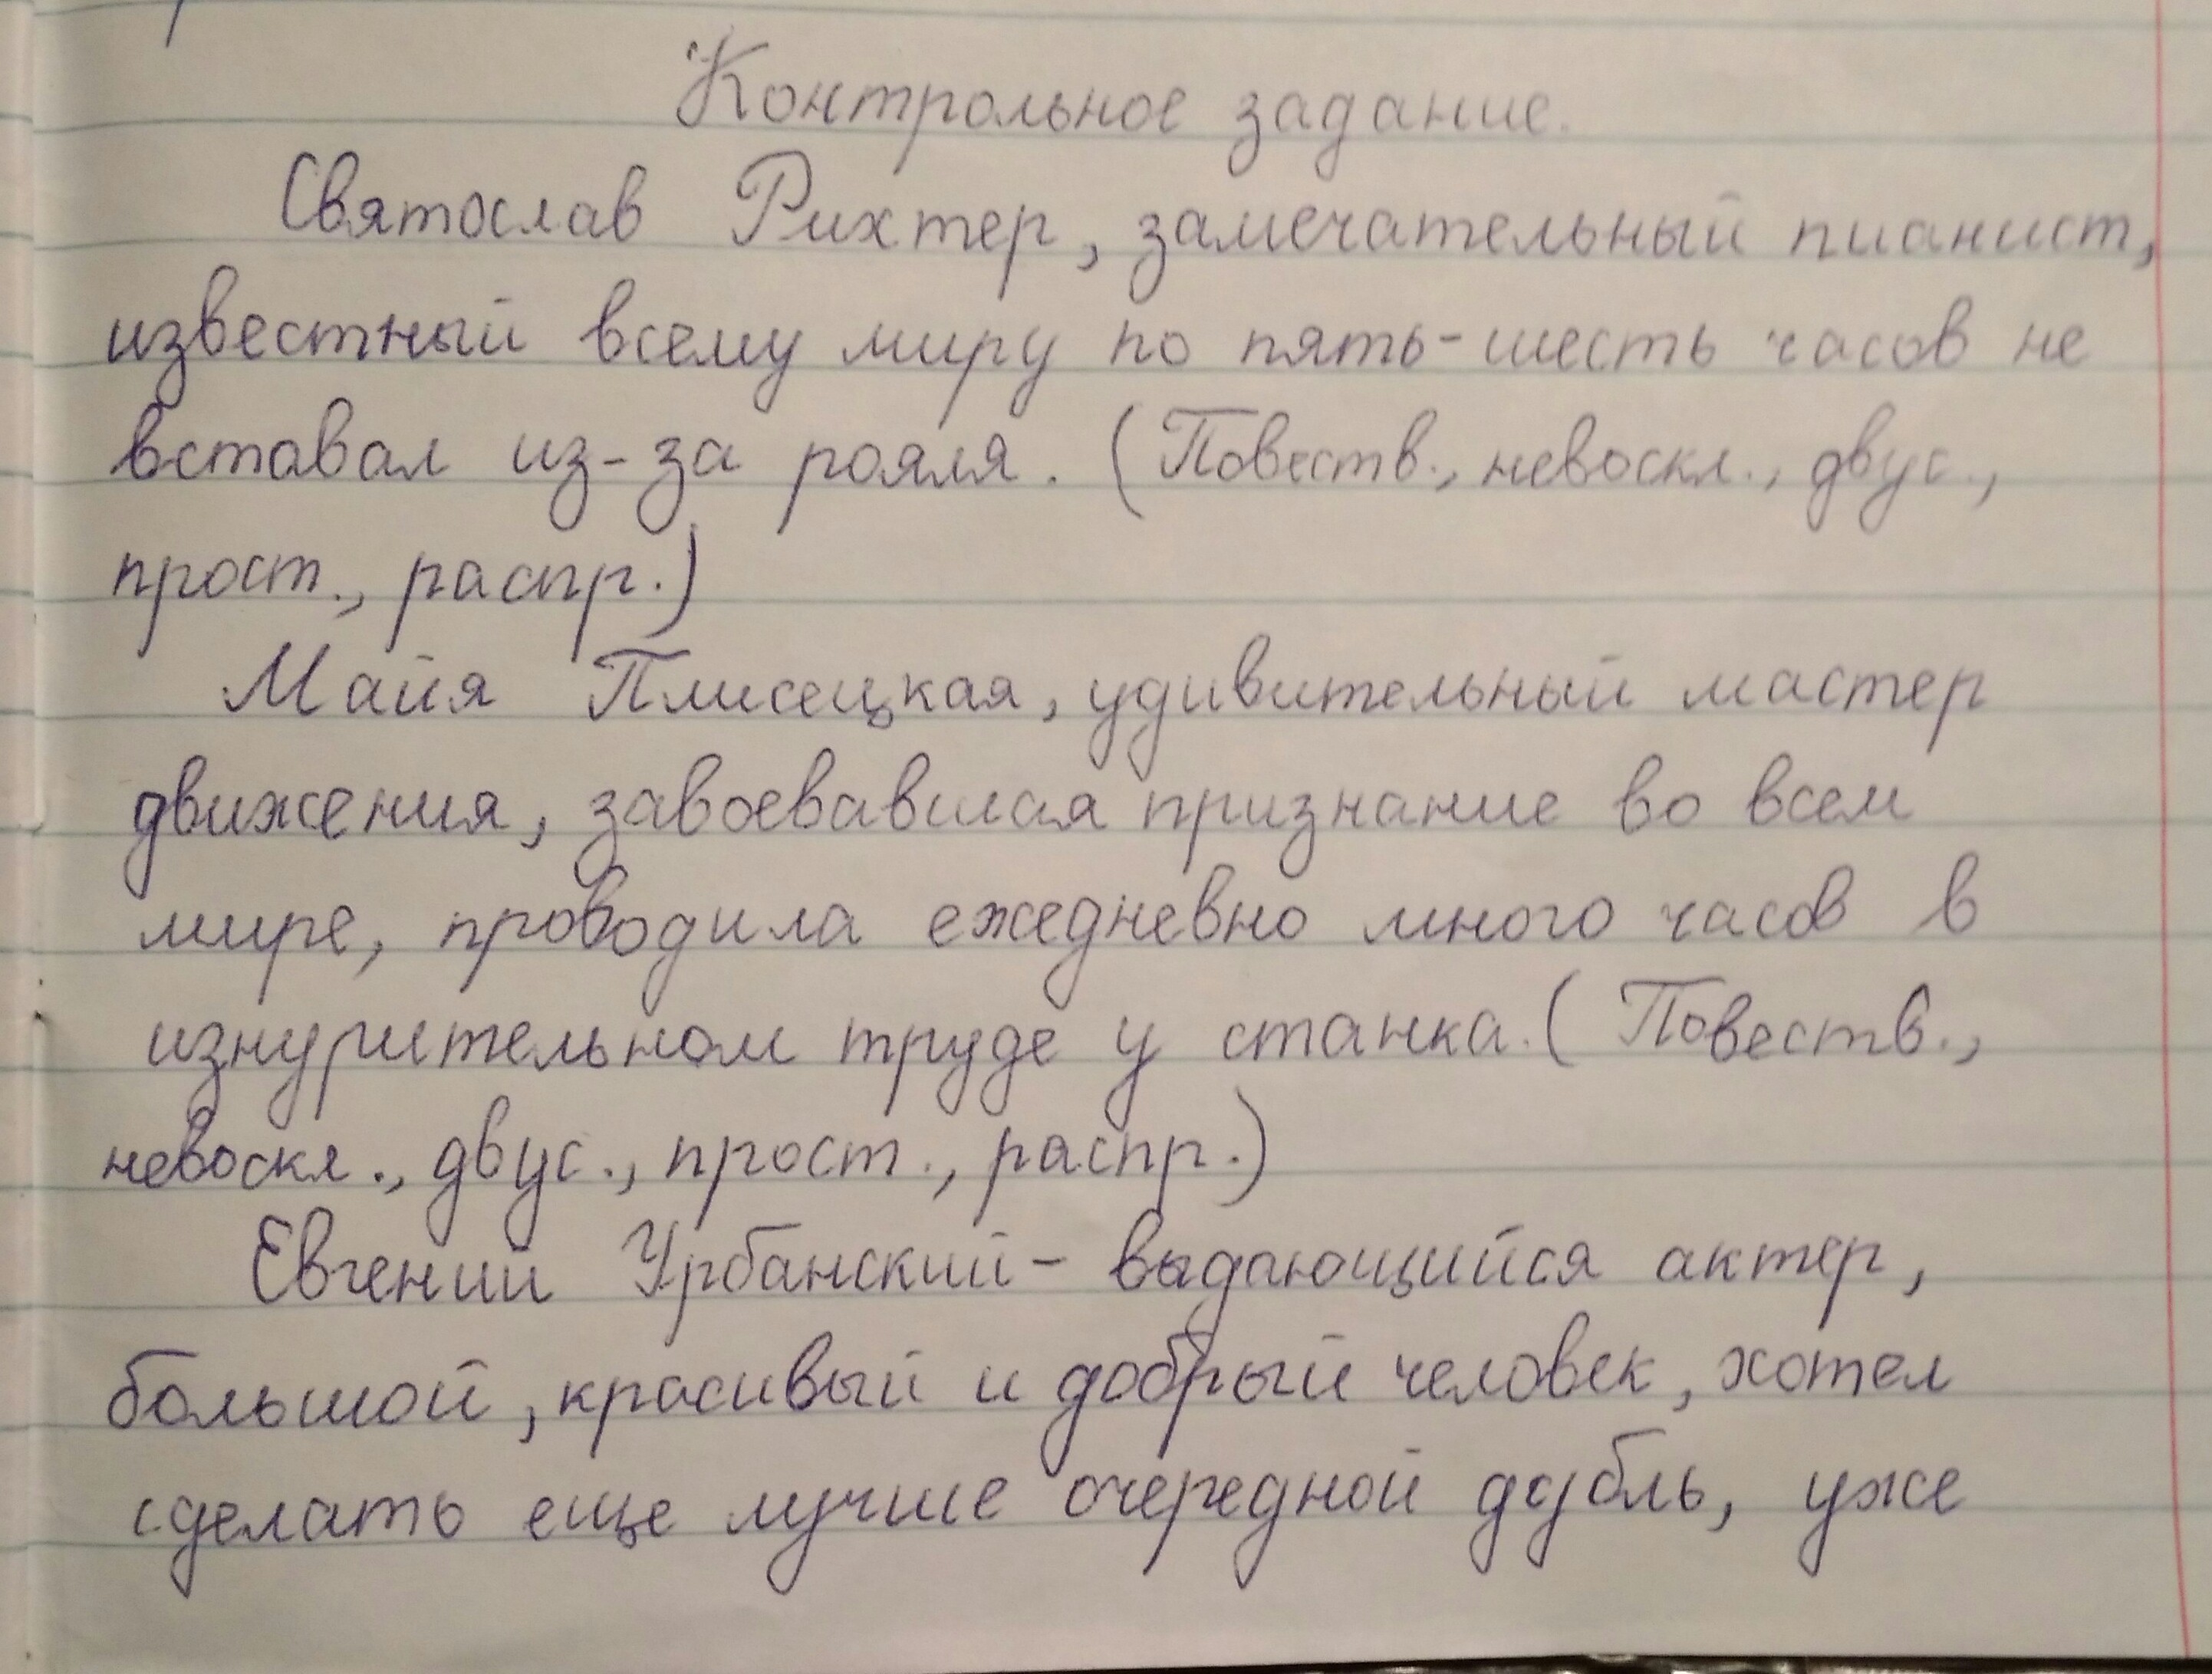 Контрольное задание.
Святослав Рихтер, замечательный пианист,
известный всему миру по пять-шесть часов не
вставал из-за рояля. (Повеств., невоскл., двус.,
прост., распр.)
Майя Плисецкая, удивительный мастер
движения, завоевавшая признание во всем
мире, проводила ежедневно много часов в
изнурительном труде у станка. (Повеств.,
невоскл., двус., прост., распр.)
Евгений Урбанский - выдающийся актер,
большой, красивый и добрый человек, хотел
сделать еще лучше очередной дубль, уже